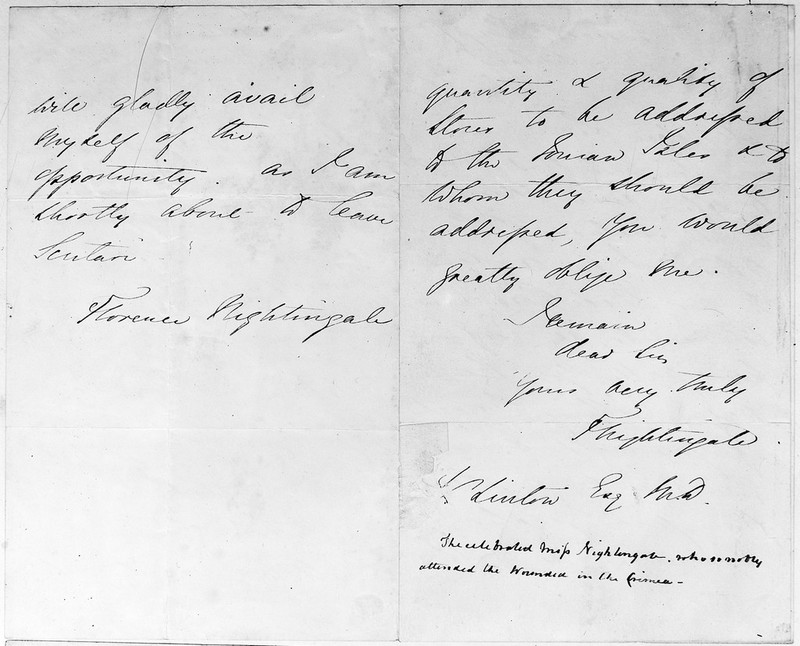 will gladly avail
myself of the
opportunity. as I am
shortly about to leave
Scutari
Florence Nightingale
quantity & quality of
Stores to be addressed
to the Ionian Isles & to
whom they should be
addressed, you would
greatly oblige me.
I remain
dear Sir
Yours very truly
F Nightingale.
Linton Esq M.D.
The celebrated Miss Nightingale, who so nobly
attended the Wounded in the Crimea -